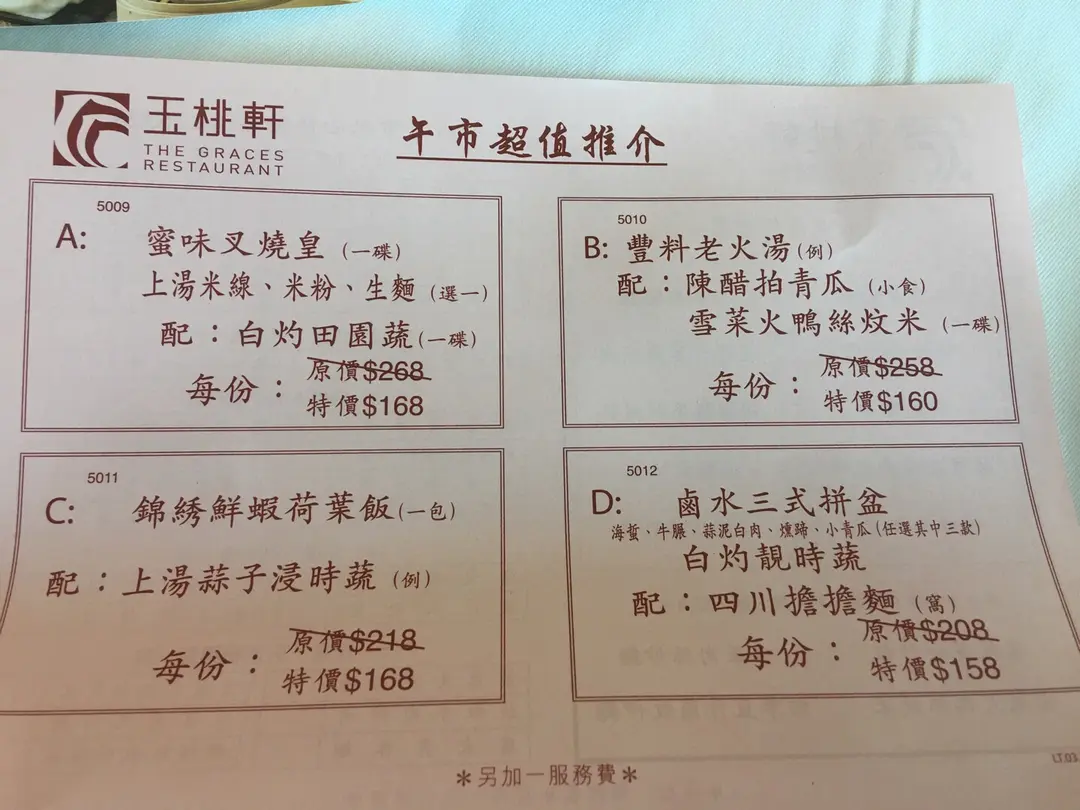 玉桃軒
THE GRACES
RESTAURANT
午市超值推介
5009
A: 蜜味叉燒皇 (一碟)
上湯米線、米粉、生麵 (選一)
配：白灼田園蔬(一碟)
每份：
原價$268
特價$168
5010
B: 豐料老火湯(例)
配：陳醋拍青瓜 (小食)
雪菜火鴨絲炆米 (一碟)
每份：
原價$258
特價$160
5011
C: 錦綉鮮蝦荷葉飯(一包)
配：上湯蒜子浸時蔬 (例)
每份：
原價$218
特價$168
5012
D: 鹵水三式拼盆
海蜇、牛𦟌、蒜泥白肉、燻蹄、小青瓜(任選其中三款)
白灼靚時蔬
配：四川擔擔麵 (窩)
每份：
原價$208
特價$158
＊另加一服務費＊
LT.03.